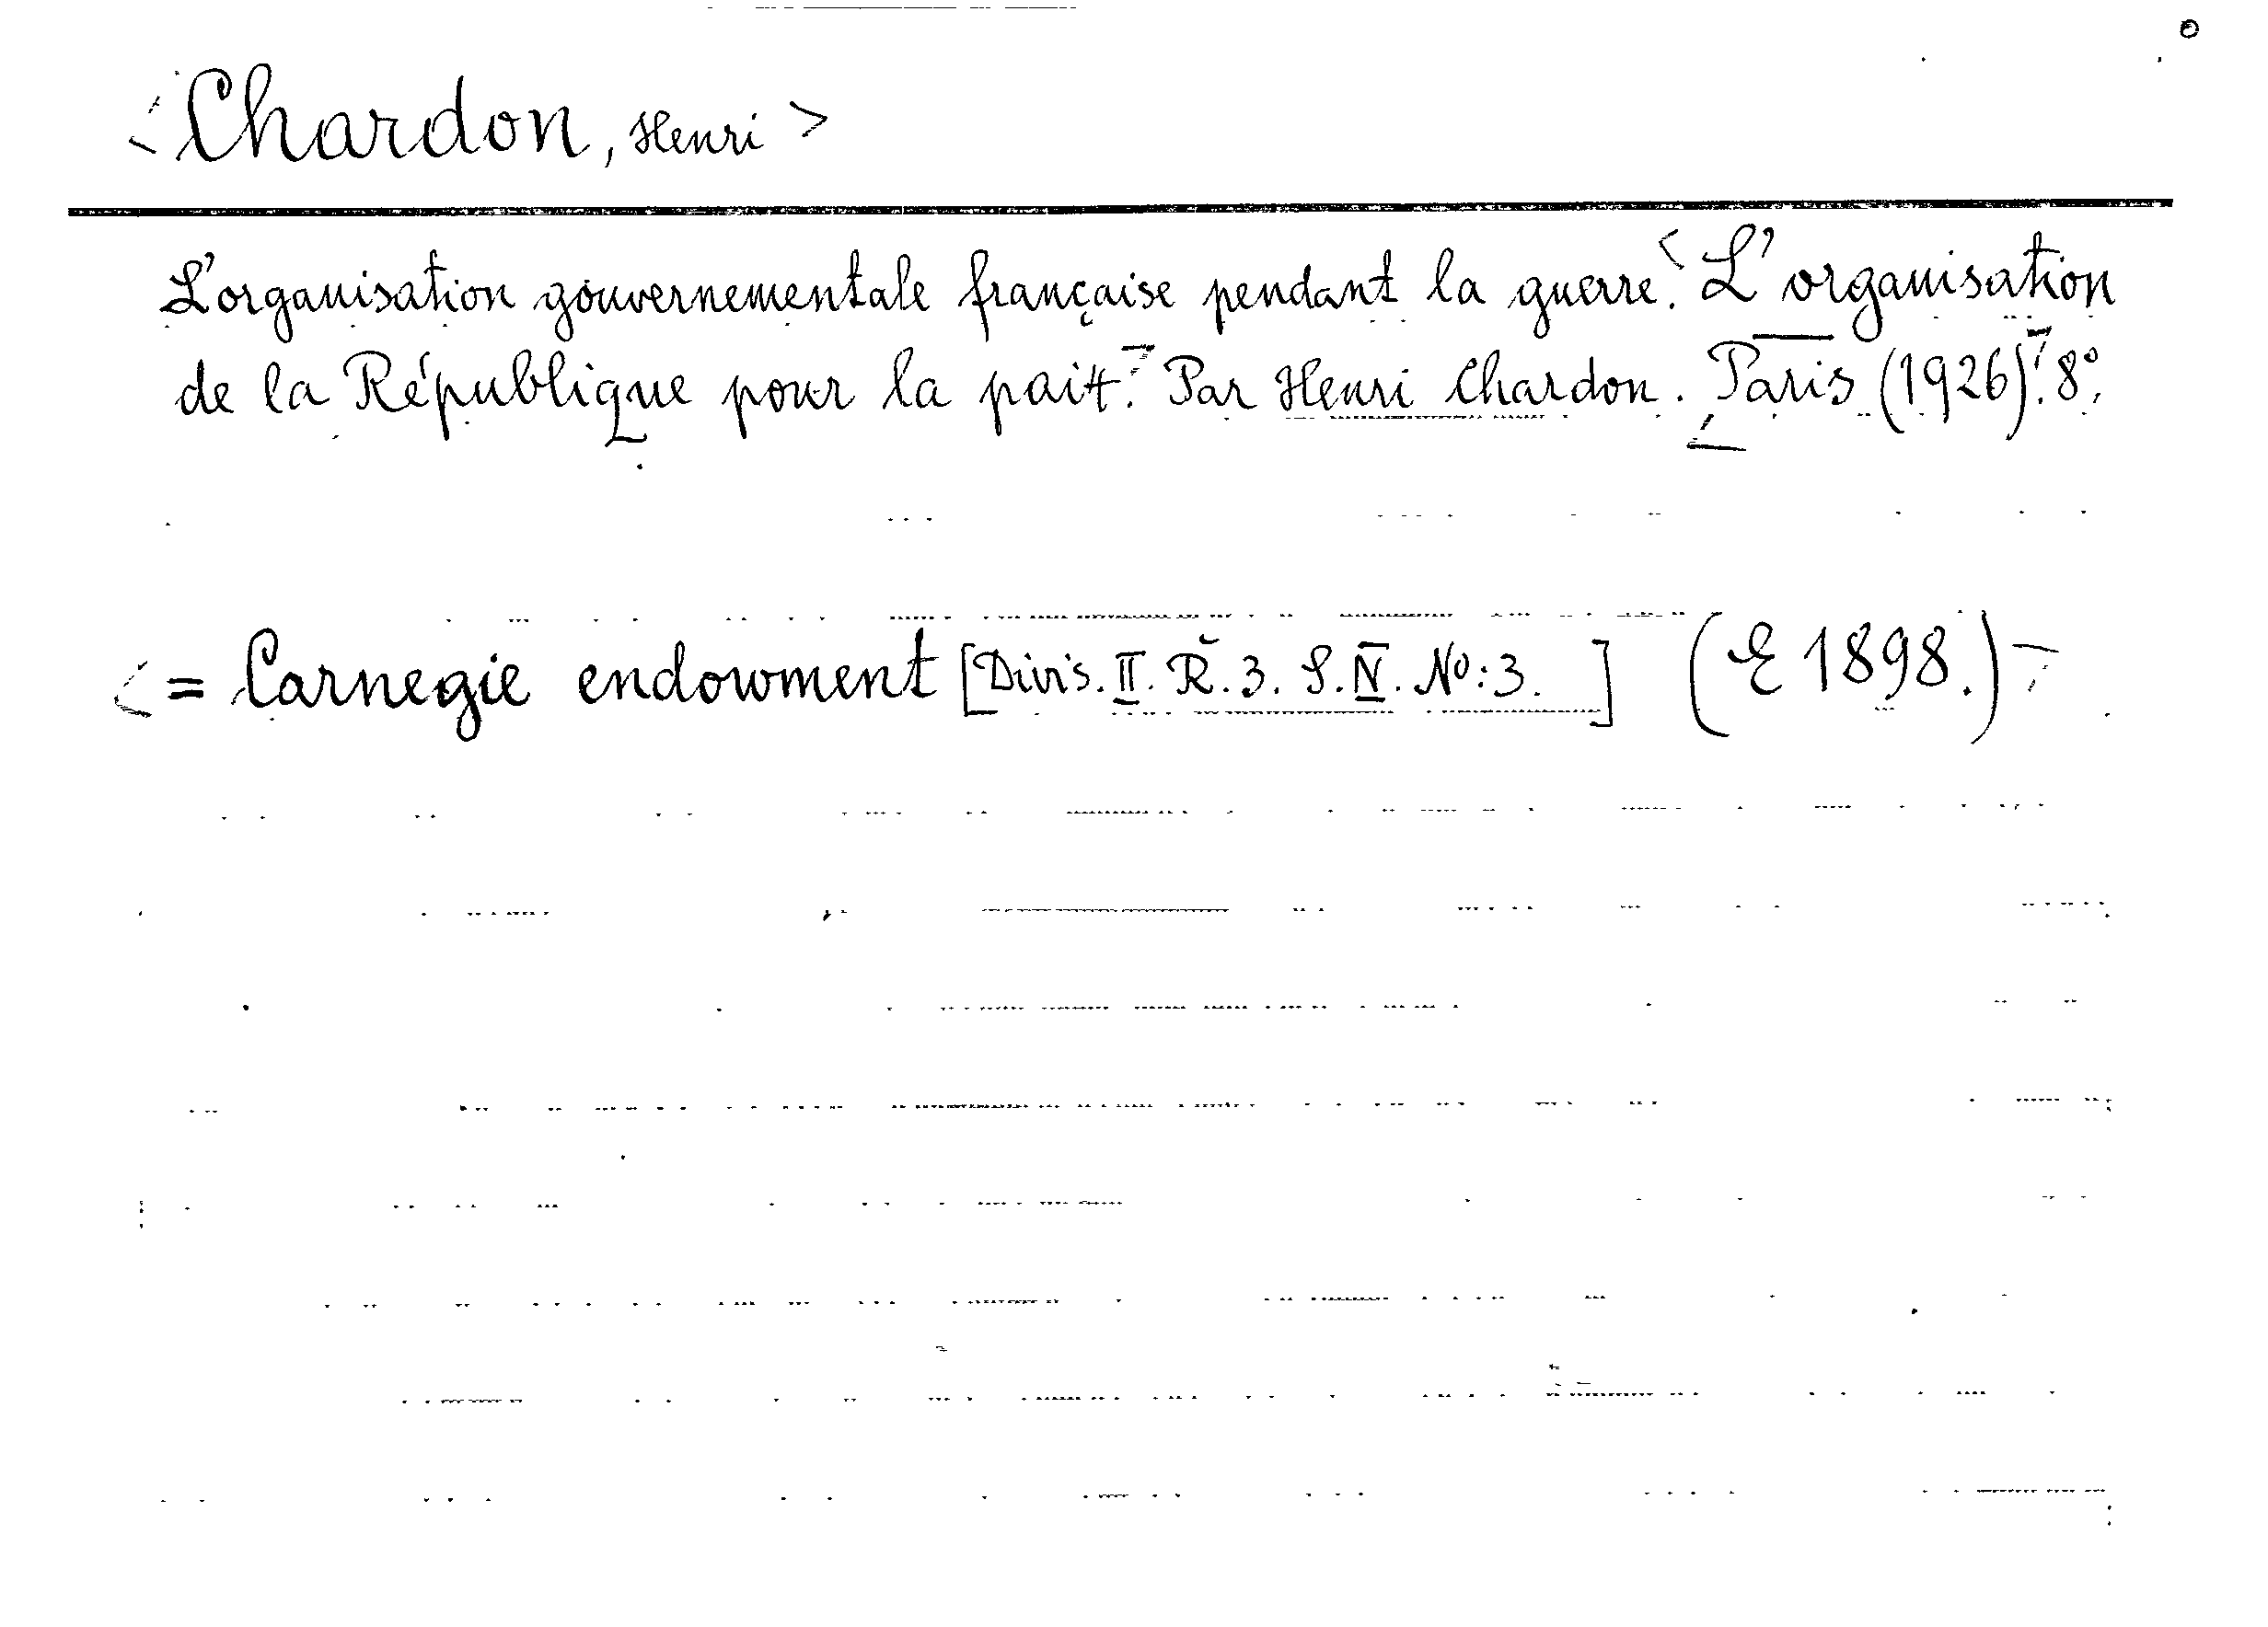 <Chardon, Henri>
L'organisation gouvernementale française pendant la guerre. <L'organisation
de la République pour la paix.> Par Henri Chardon. <Paris (1926).> 8°.
<= Carnegie endowment [Divis. II. R. 3. S. IV. No: 3. ] (E 1898.)>